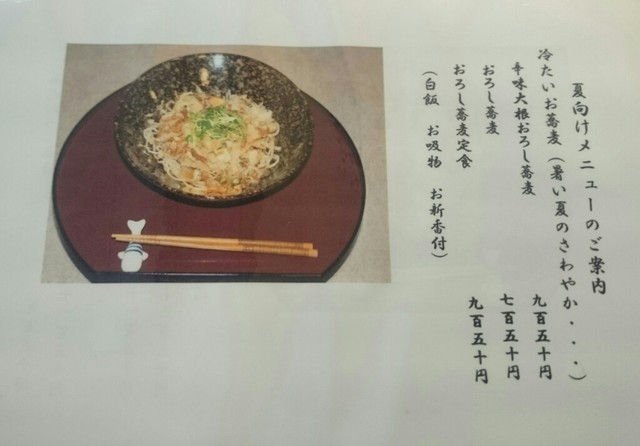 夏向けメニューのご案内
冷たいお蕎麦（暑い夏のさわやか・・・）
辛味大根おろし蕎麦 九百五十円
おろし蕎麦 七百五十円
おろし蕎麦定食 九百五十円
（白飯 お吸物 お新香付）